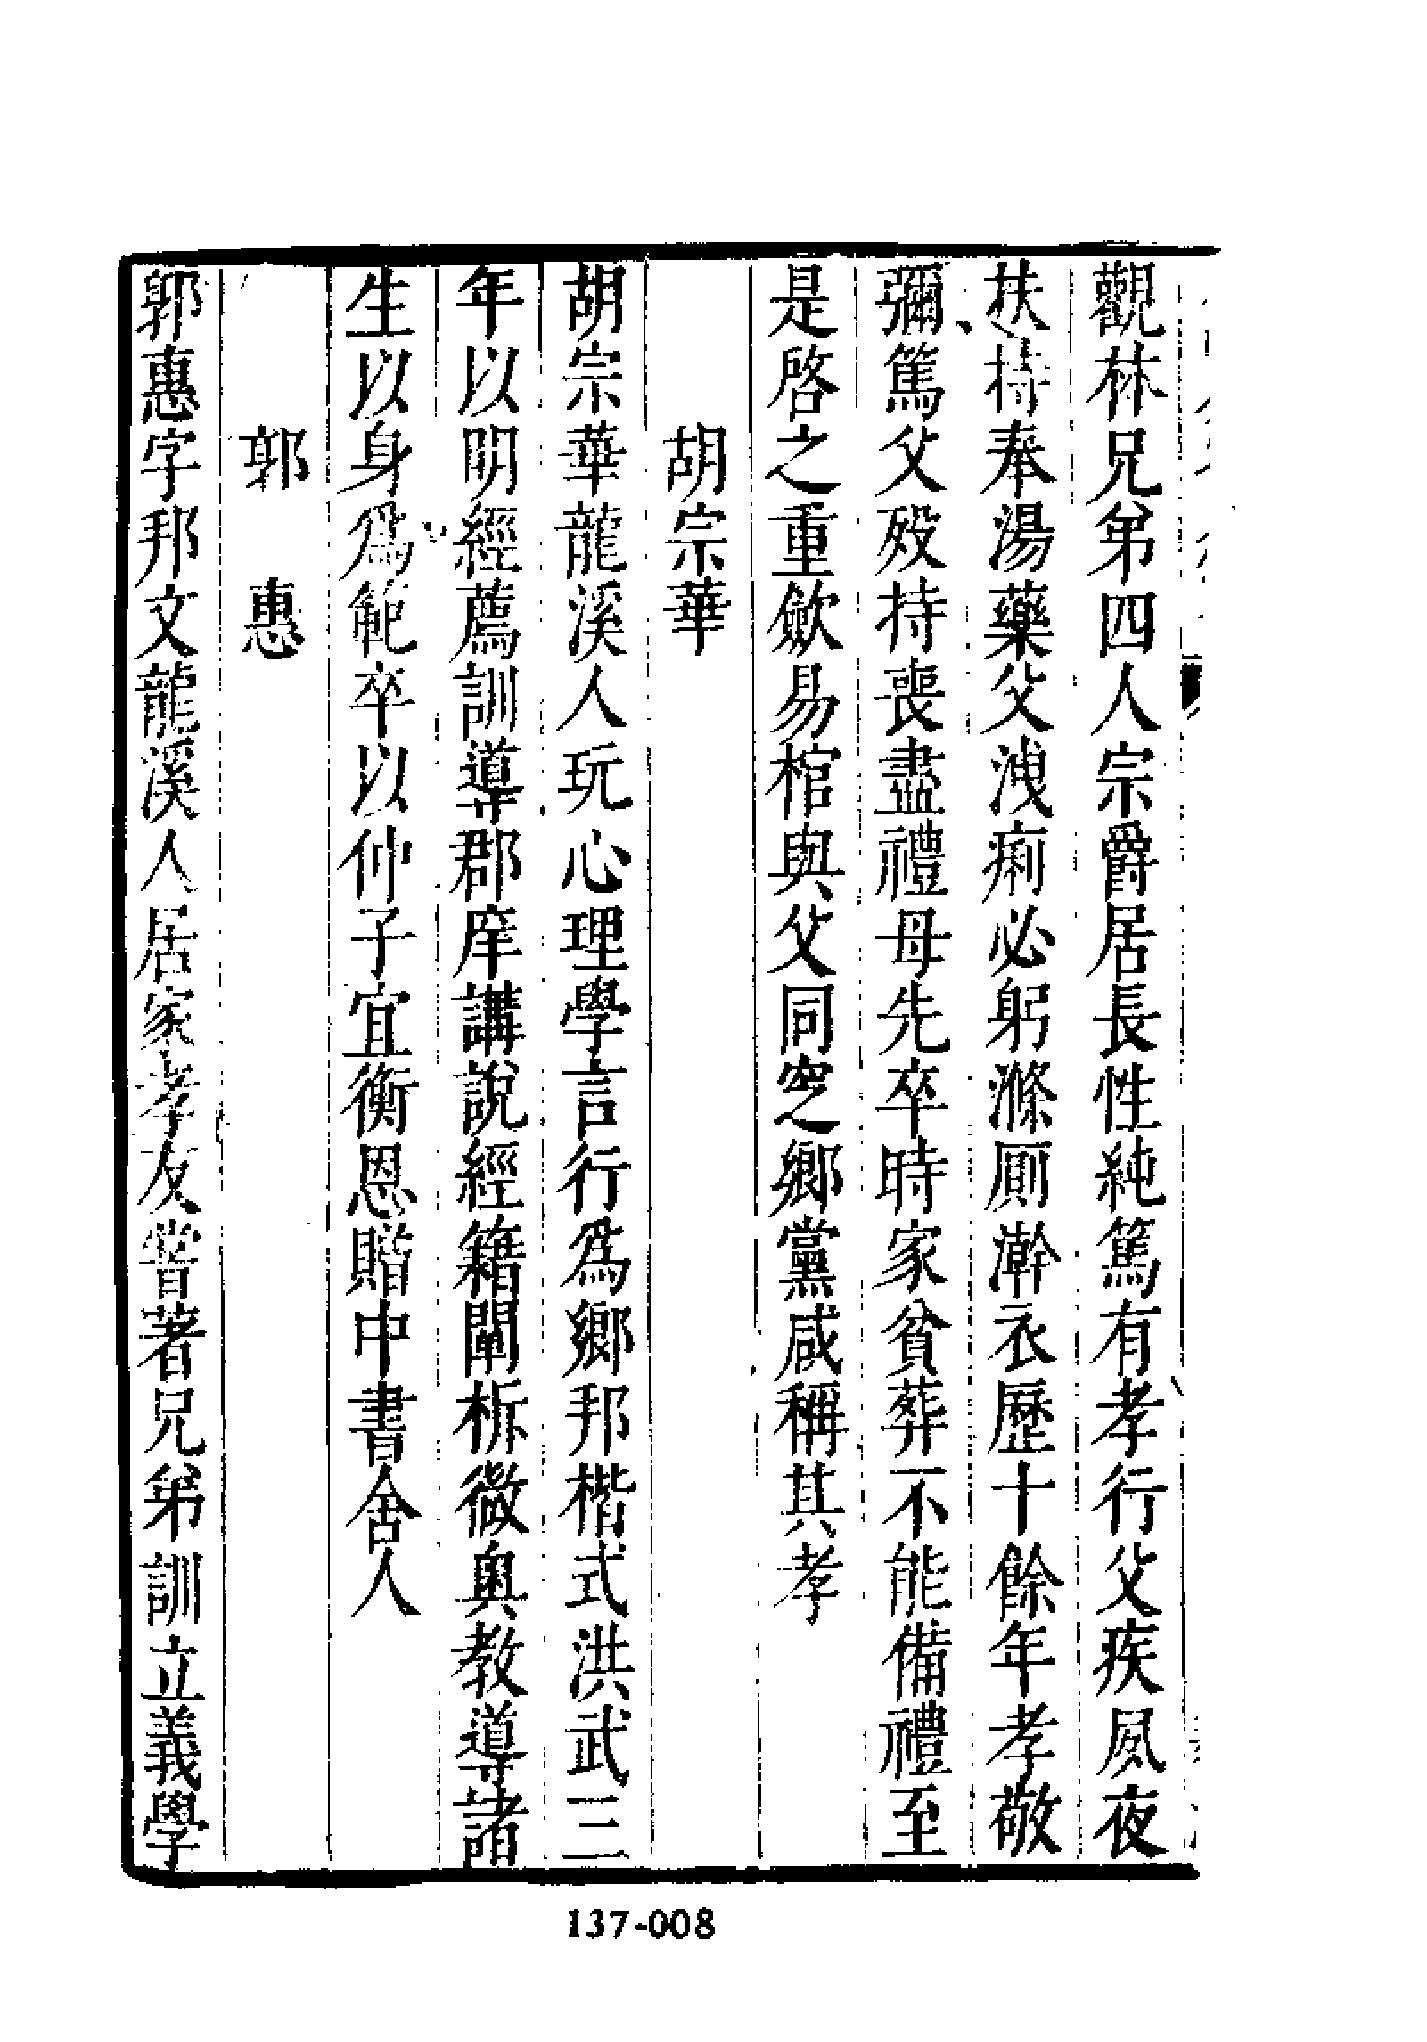 觀林兄弟四人宗爵居長性純篤有孝行父疾夙夜
扶持奉湯藥父洩痢必躬滌厠澣衣歷十餘年孝敬
彌篤父歿持喪盡禮母先卒時家貧葬不能備禮至
是啓之重斂易棺與父同窆鄉黨咸稱其孝
胡宗華
胡宗華龍溪人玩心理學言行爲鄉邦楷式洪武三
年以明經薦訓導郡庠講說經籍闡析微奧教導諸
生以身爲範卒以仲子宜衡恩贈中書舍人
郭惠
郭惠字邦文龍溪人居家孝友嘗著兄弟訓立義學
137-008